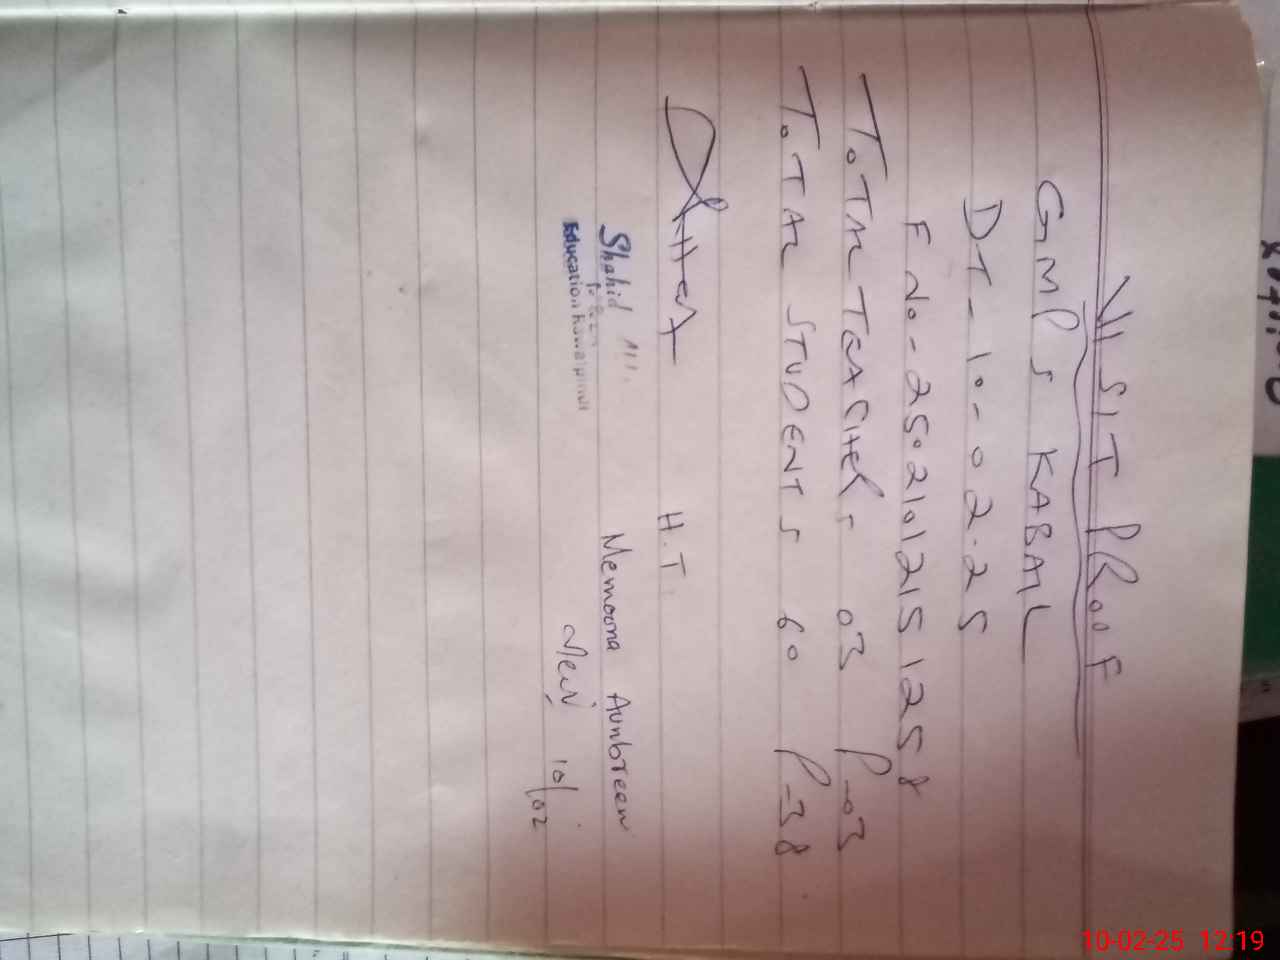 VISIT PROOF
GMPS KABAIL
DT-10-02-25
F No-25021012151258
ToTAL TEACHERS 03 P-03
ToTAL STUDENTS 60 P-38
H.T
Shahid
Memoona Aunbreen
Education Rawalpindi
10/02
10-02-25 12:19